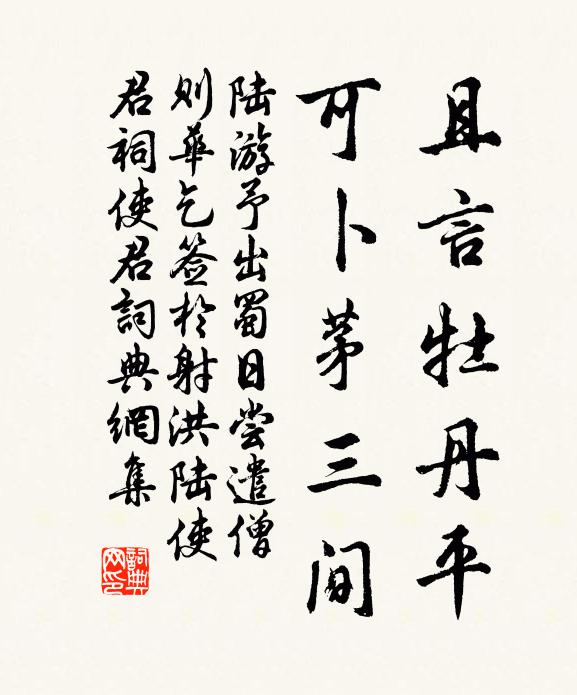 且言牡丹平
可卜茅三间
陆游予出蜀日尝遣僧
则华乞签於射洪陆使
君祠使君詞典網集
詞典
网印